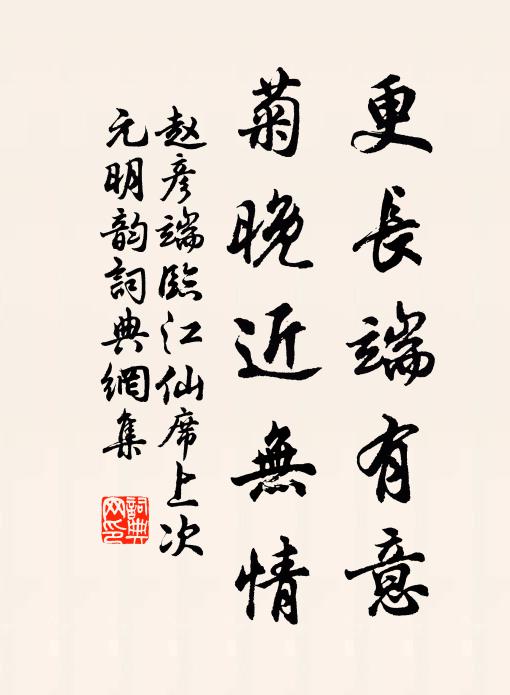 更長端有意
菊晚近無情
赵彦端臨江仙席上次
元明韵詞典網集
詞典
网印